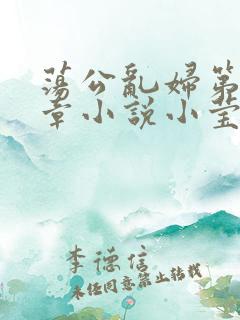 荡公乱婦第
章小说小莹
李德信
未经同意禁止转载